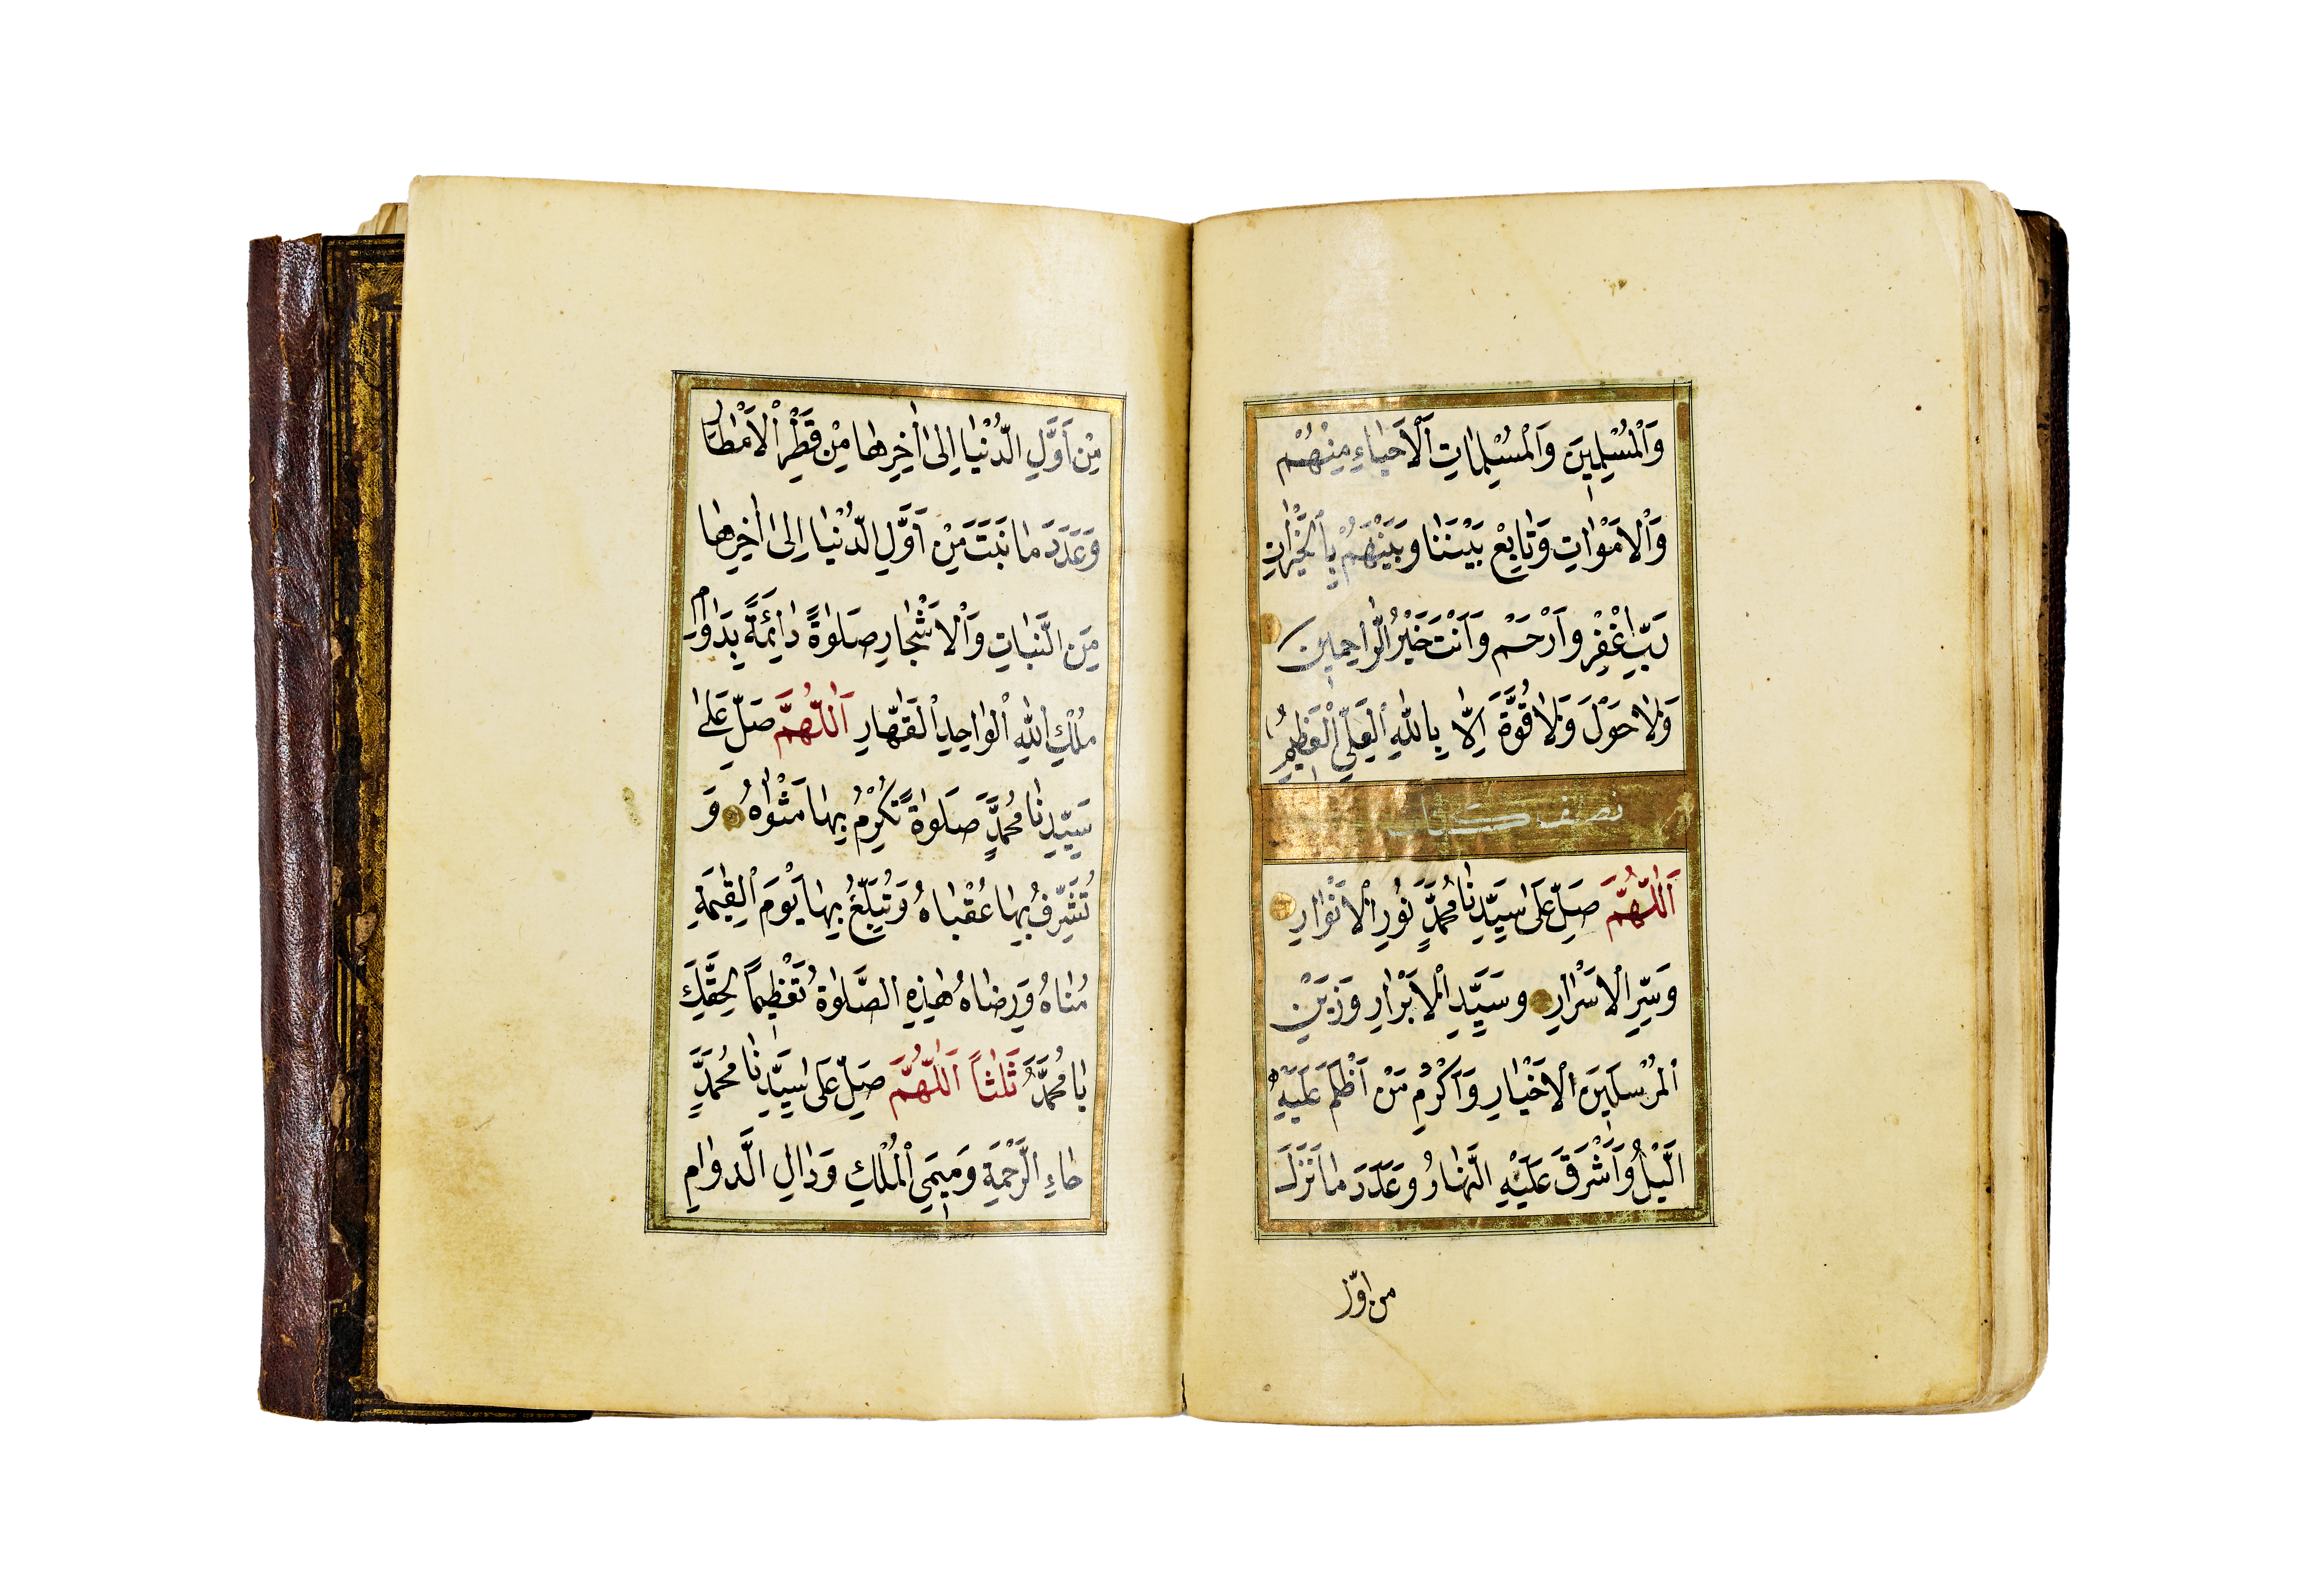 وَالْمُسْلِمِينَ وَالْمُسْلِمَاتِ اَلْاَحْيَاءِ مِنْهُمْ
وَالْاَمْوَاتِ وَتَابِعْ بَيْنَنَا وَبَيْنَهُمْ بِالْخَيْرَاتِ
رَبِّ اغْفِرْ وَارْحَمْ وَاَنْتَ خَيْرُ الرَّاحِمِينَ
وَلَا حَوْلَ وَلَا قُوَّةَ اِلَّا بِاللّٰهِ الْعَلِيِّ الْعَظِيمِ
نصف كتاب
اَللّٰهُمَّ صَلِّ عَلٰى سَيِّدِنَا مُحَمَّدٍ نُورِ الْاَنْوَارِ
وَسِرِّ الْاَسْرَارِ وَسَيِّدِ الْاَبْرَارِ وَزَيْنِ
الْمُرْسَلِينَ الْاَخْيَارِ وَاَكْرَمِ مَنْ اَظْلَمَ عَلَيْهِ
الَّيْلُ وَاَشْرَقَ عَلَيْهِ النَّهَارُ وَعَدَدَ مَا نَزَلَ
من اوّل
مِنْ اَوَّلِ الدُّنْيَا اِلٰى اٰخِرِهَا مِنْ قَطْرِ الْاَمْطَارِ
وَعَدَدَ مَا نَبَتَ مِنْ اَوَّلِ الدُّنْيَا اِلٰى اٰخِرِهَا
مِنَ النَّبَاتِ وَالْاَشْجَارِ صَلٰوةً دَائِمَةً بِدَوَامِ
مُلْكِ اللّٰهِ الْوَاحِدِ الْقَهَّارِ اَللّٰهُمَّ صَلِّ عَلٰى
سَيِّدِنَا مُحَمَّدٍ صَلٰوةً تُكْرِمُ بِهَا مَثْوٰاهُ وَ
تُشَرِّفُ بِهَا عُقْبَاهُ وَتُبَلِّغُ بِهَا يَوْمَ الْقِيٰمَةِ
مُنَاهُ وَرِضَاهُ هٰذِهِ الصَّلٰوةُ تَعْظِيمًا لِحَقِّكَ
يَا مُحَمَّدُ ثَلٰثًا اَللّٰهُمَّ صَلِّ عَلٰى سَيِّدِنَا مُحَمَّدٍ
حَاءِ الرَّحْمَةِ وَمِيمَيِ الْمُلْكِ وَدَالِ الدَّوَامِ